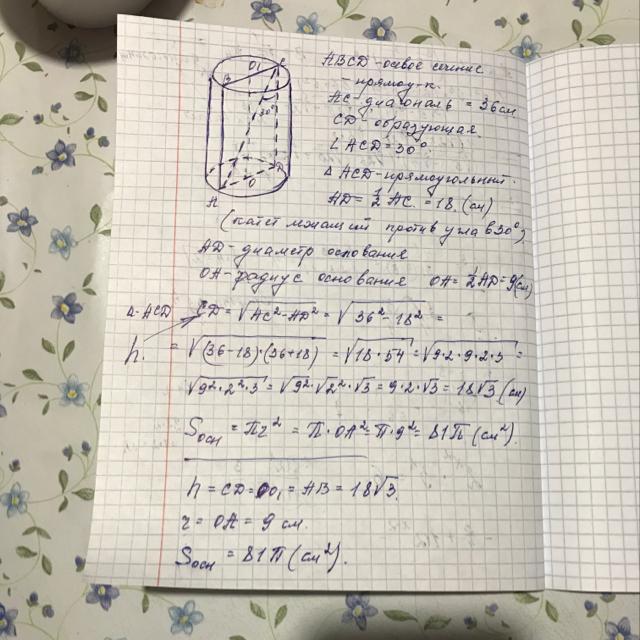 ABCD - осевое сечение
- прямоуг-к.
AC - диагональ = 36 см
CD - образующая
∠ACD = 30°
Δ ACD - прямоугольный.
AD = 1/2 AC = 18 (см)
(катет лежащий против угла в 30°)
AD - диаметр основания
OA - радиус основания OA = 1/2 AD = 9 (см)
Δ ACD CD = √(AC² - AD²) = √(36² - 18²) =
h. = √((36-18)·(36+18)) = √(18·54) = √(9·2·9·2·3) =
√(9²·2²·3) = √9²·√2²·√3 = 9·2·√3 = 18√3 (см)
Sосн = πr² = π·OA² = π·9² = 81π (см²).
h = CD = OO₁ = AB = 18√3.
r = OA = 9 см.
Sосн = 81π (см²).
O₁
C
B
30°
D
O
A